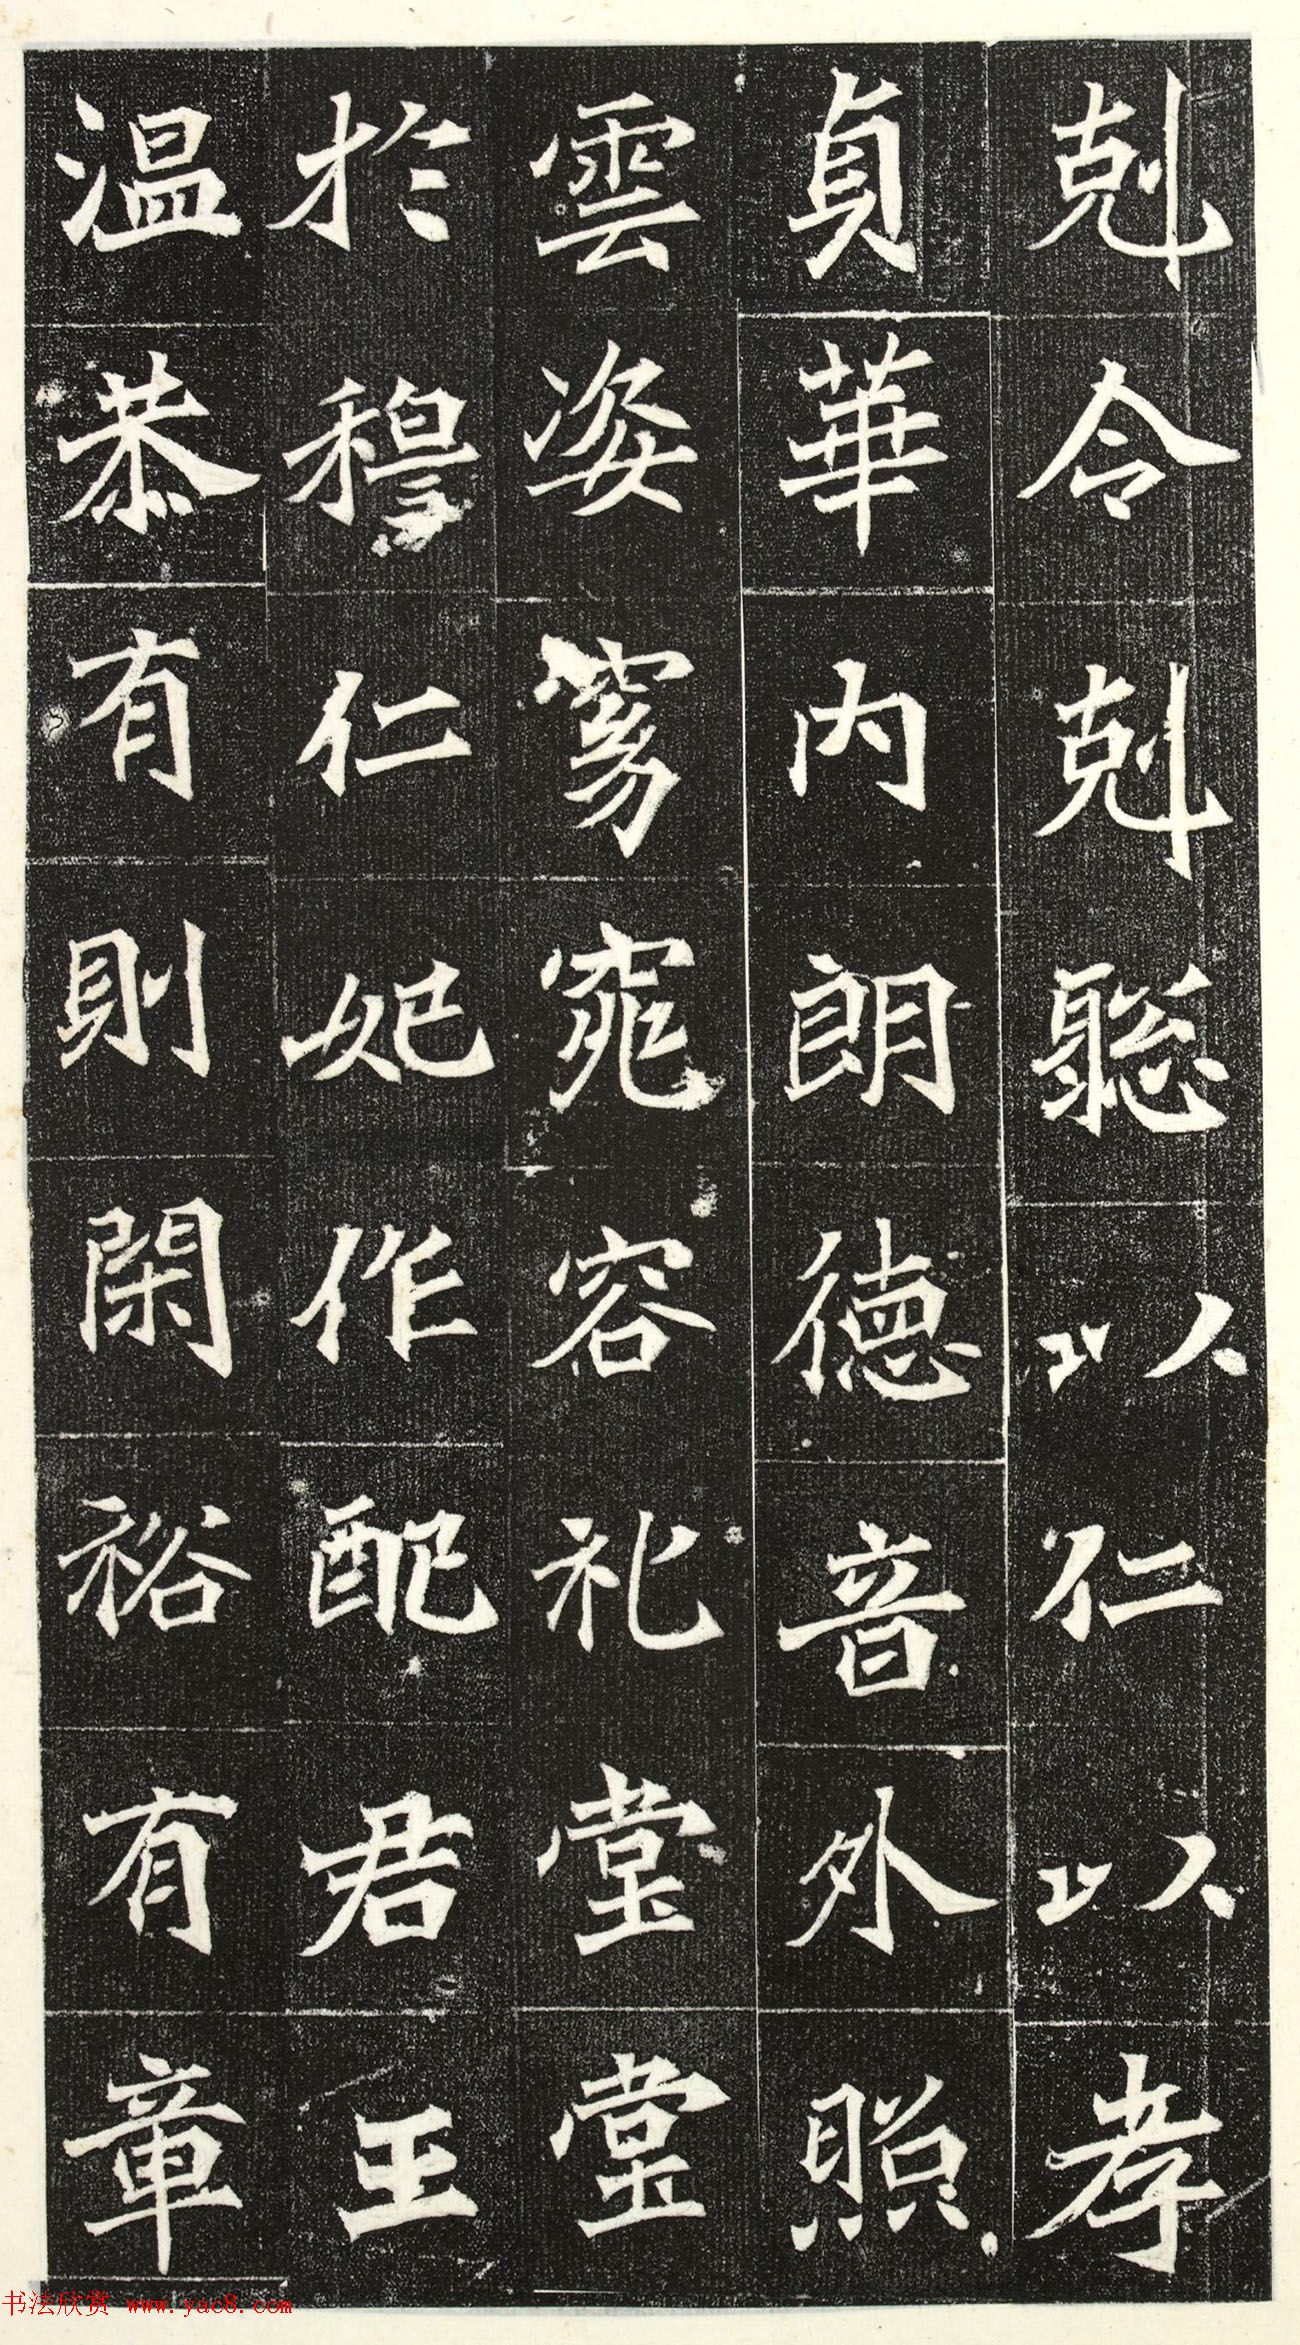 剋令剋聡以仁以孝
貞華内朗德音外照
雲姿窈窕容礼堂堂
於穆仁妃作配君王
温恭有則閑裕有章
书法欣赏 www.yac8.com